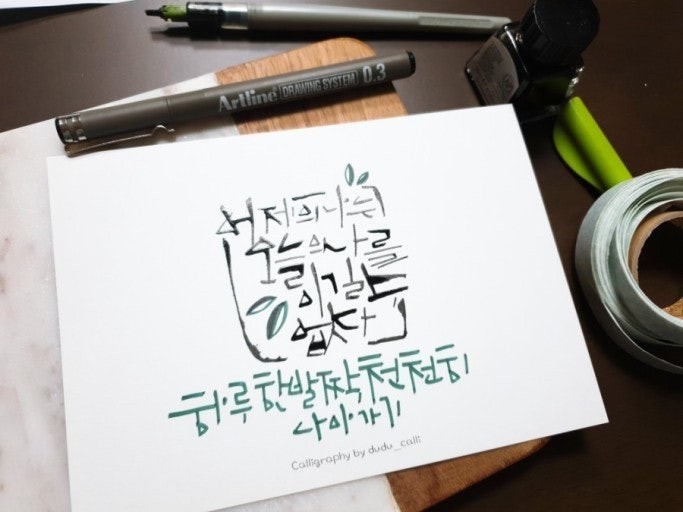 Artline DRAWING SYSTEM 0.3
어제의 나는
오늘의 나를
이길 수
없다
하루 한발짝 천천히
나아가기
Calligraphy by dudu_calli